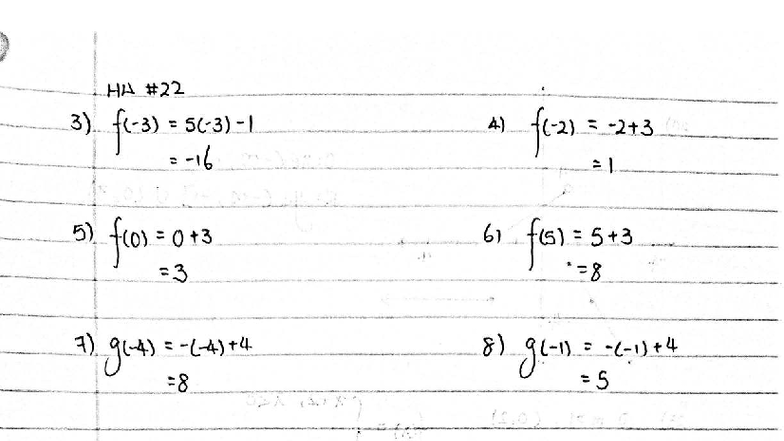 HH #22
3) f(-3) = 5(-3) - 1
= -16
4) f(-2) = -2+3
= 1
5) f(0) = 0+3
= 3
6) f(5) = 5+3
= 8
7) g(-4) = -(-4)+4
= 8
8) g(-1) = -(-1)+4
= 5